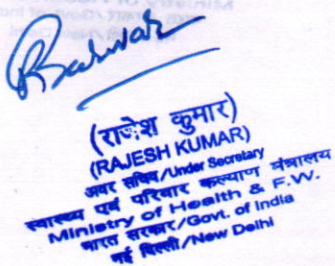 (राजेश कुमार)
(RAJESH KUMAR)
अवर सचिव/Under Secretary
स्वास्थ्य एवं परिवार कल्याण मंत्रालय
Ministry of Health & F.W.
भारत सरकार/Govt. of India
नई दिल्ली/New Delhi